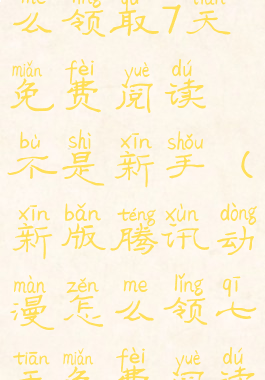 me lǐng qǔ tiān
么领取7天
miǎn fèi yuè dú
免费阅读
bù shì xīn shǒu
不是新手（
xīn bǎn téng xùn dòng
新版腾讯动
màn zěn me lǐng qī
漫怎么领七
tiān miǎn fèi yuè dú
天免费阅读